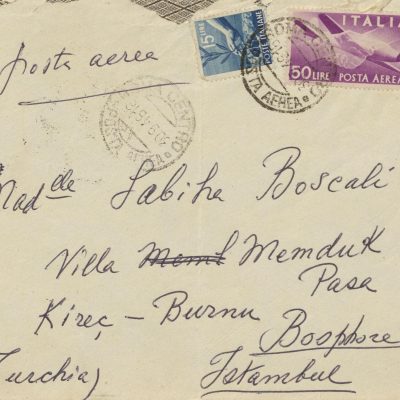 posta aerea
15 LIRE
POSTE ITALIANE
ITALIA
50 LIRE POSTA AEREA
ROMA CENTRO
POSTA AEREA
Mad elle Sabiha Boscali
Villa Meml Memduk
Pasa
Kireç - Burnu
Bosphore
Turchia) Istambul